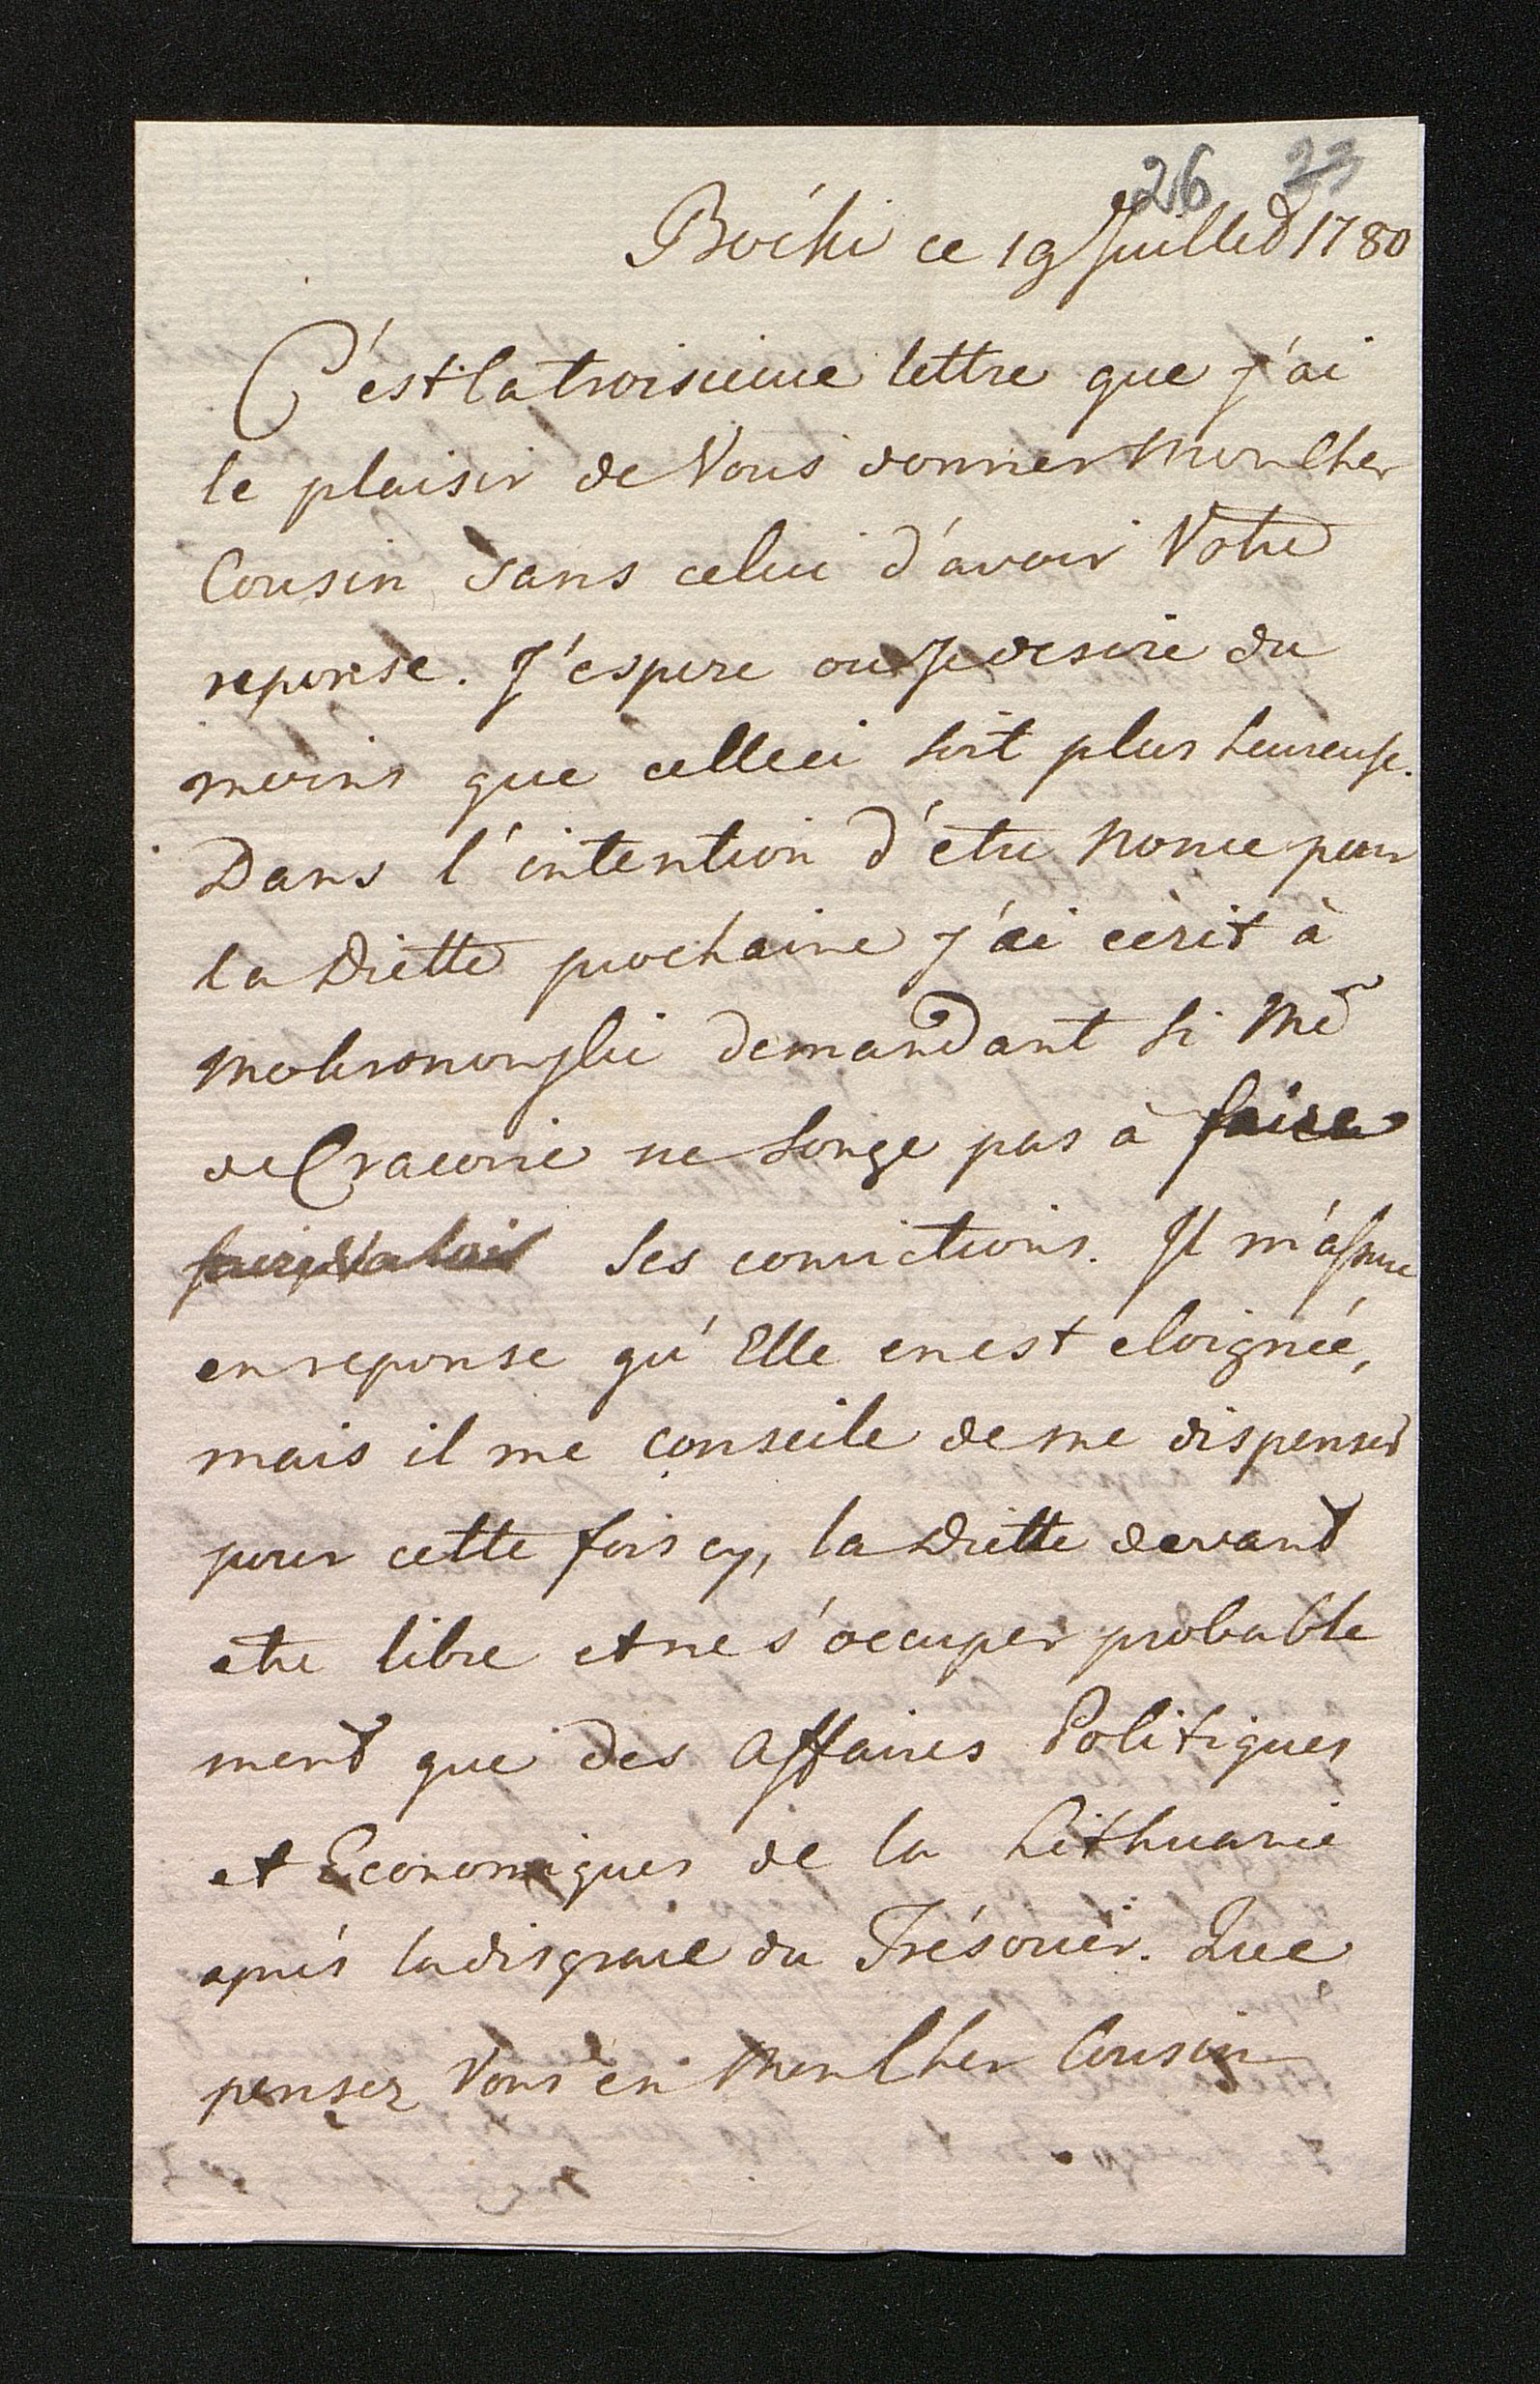 26 23
Boćki ce 19 Juillet 1780
C'est la troisieme lettre que j'ai
le plaisir de Vous donner Mon Cher
Cousin, sans celui d'avoir Votre
reponse. J'espere ou je desire du
moins que celle ci soit plus heureuse.
Dans l'intention d'etre Nonce pour
la Diette prochaine j'ai ecrit à
Mokronowski demandant si Me
de Cracovie ne songe pas à faire
ses convictions. Il m'assure
en reponse qu'Elle en est eloignée,
mais il me conseile de me dispenser
pour cette fois cy, la Diette devant
etre libre et ne s'occuper probable
ment que des Affaires Politiques
et Economiques de la Lithuanie
après la disgrace du Trésorier. Que
pensez Vous en Mon Cher Cousin